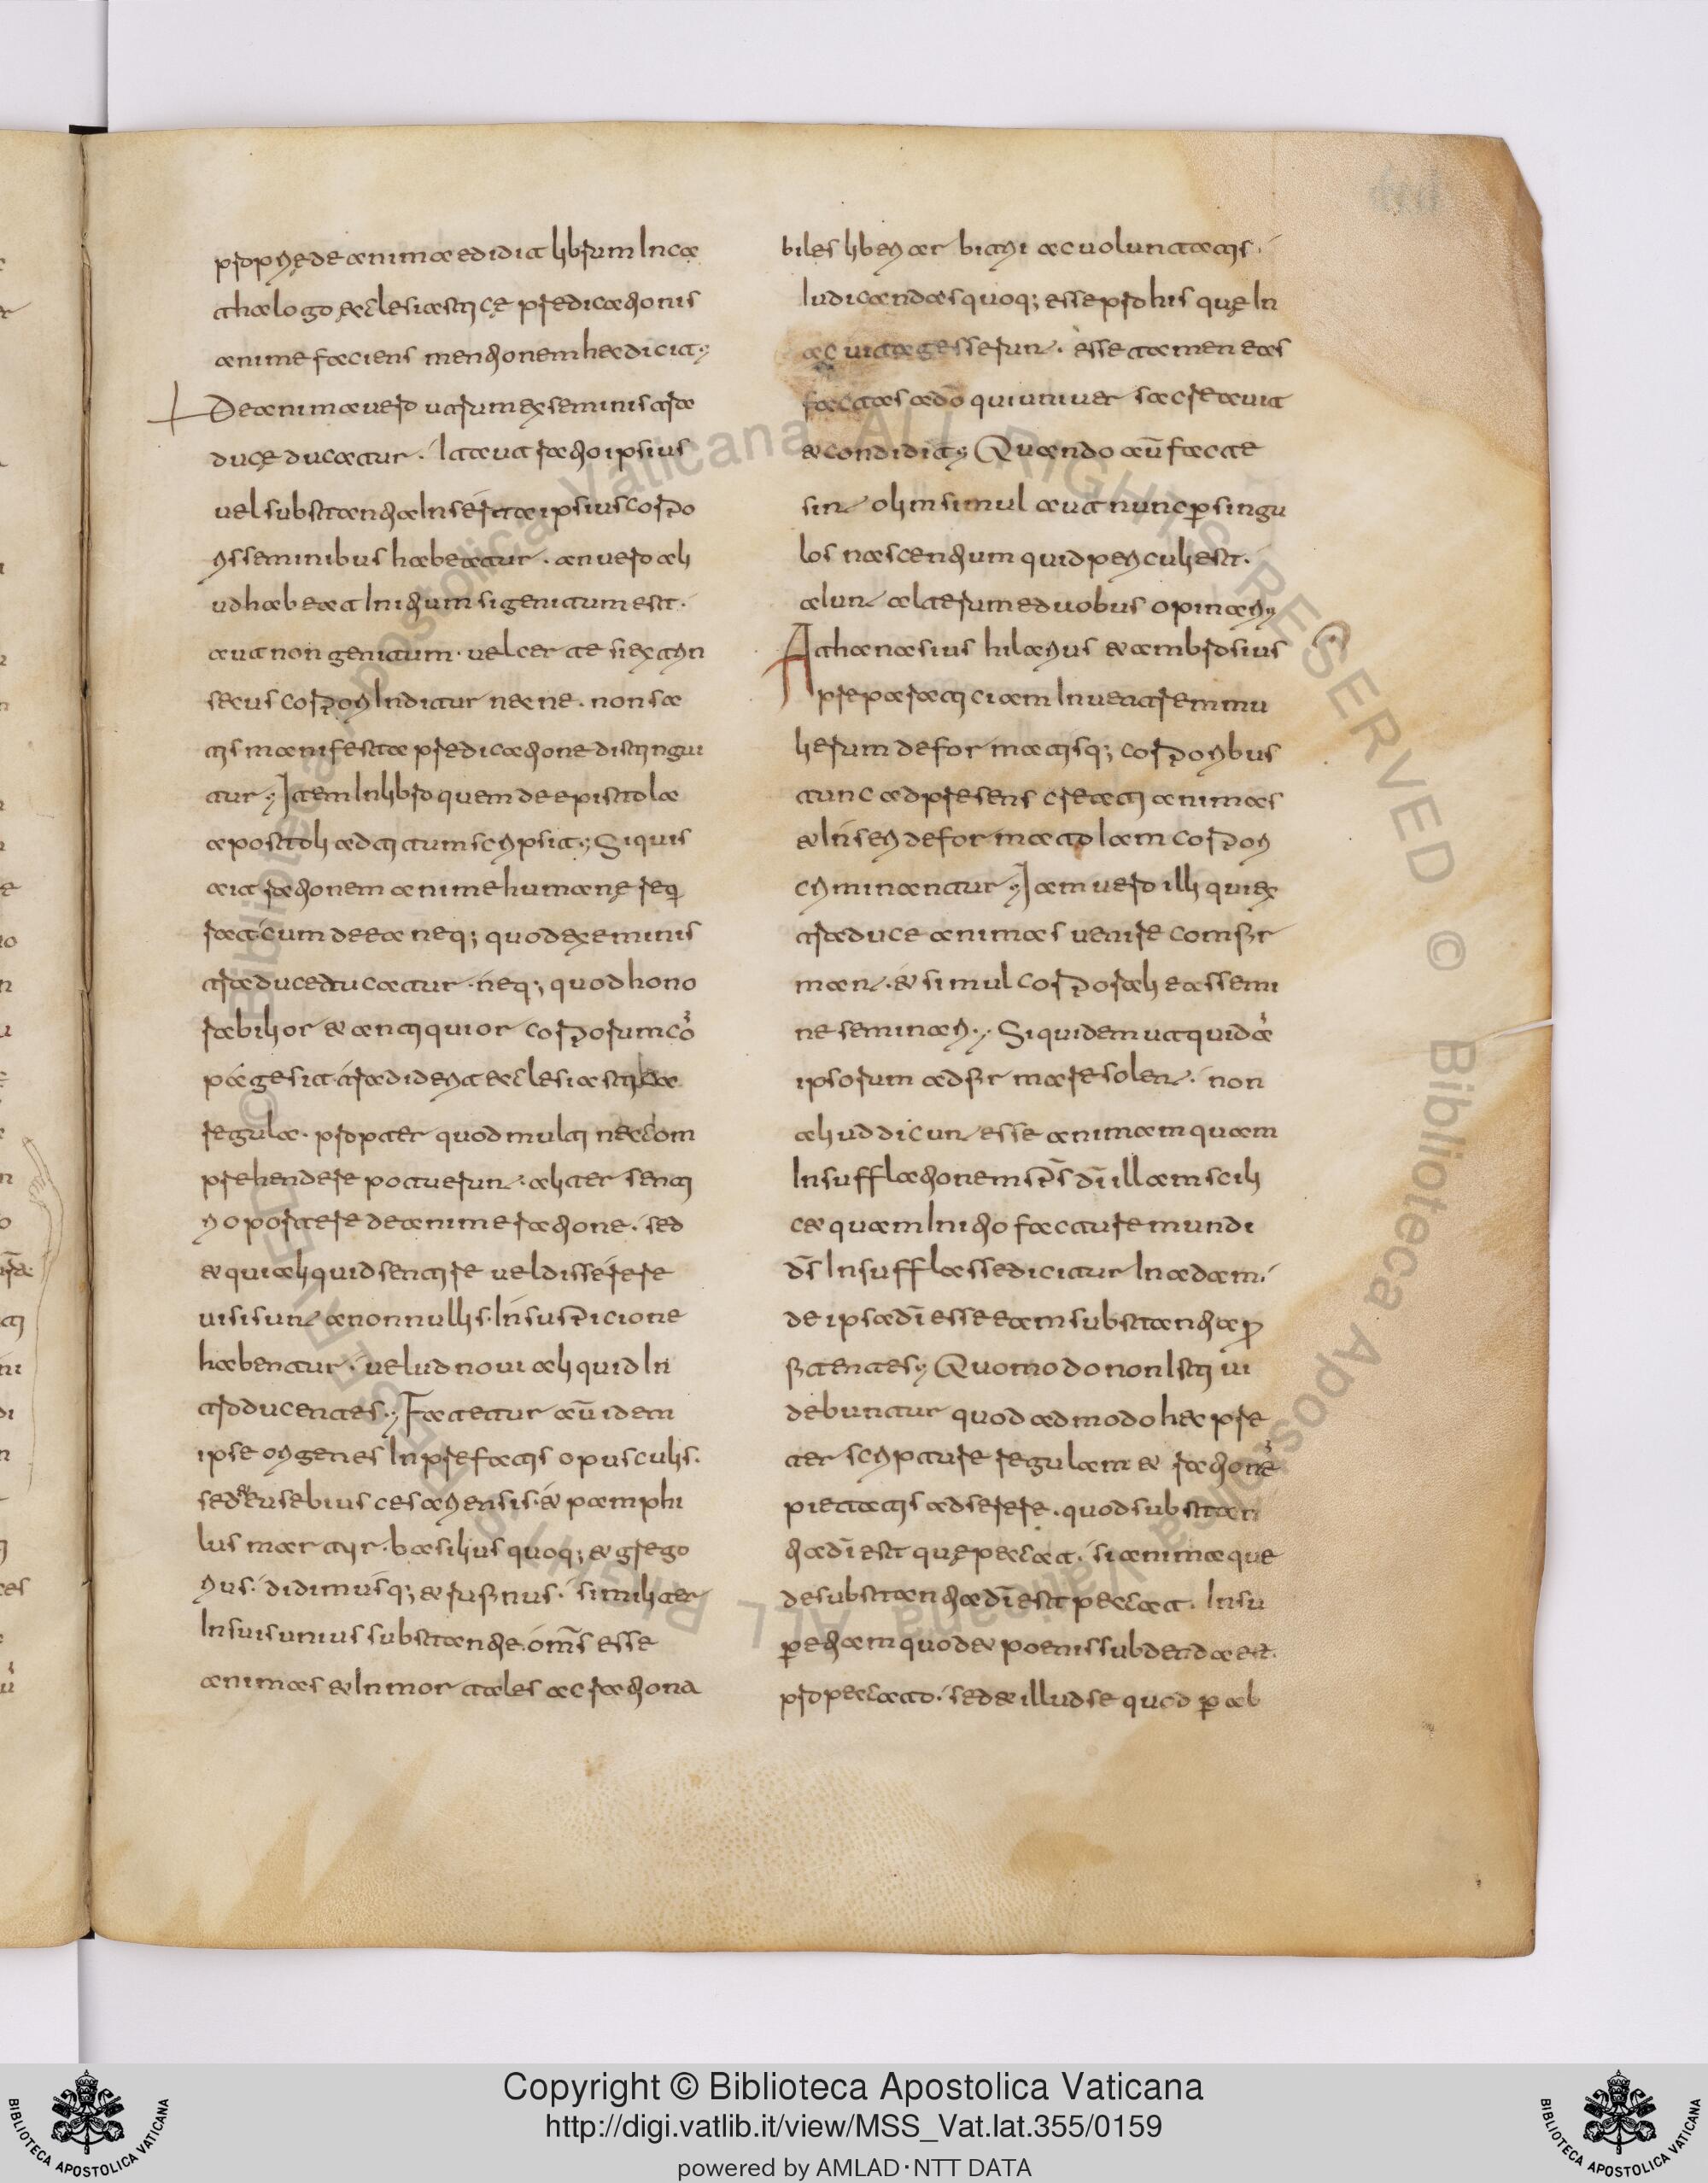 propriȩ de anima edidit librum In ca
thalogo ȩcclesiasticȩ predicationis
anime faciens mentionem hec dicit;
De anima uero utrum ex seminis tra
duce ducatur. Ita ut ratio ipsius
uel substantia Inserta ipsius corpo
ris seminibus habeatur. an uero ali
ud habeat Initium si genitum est.
aut non genitum. uel certe si extrin
secus corpori Inditur necne. non sa
tis manifesta predicatione distingui
tur; Item In libro quem de epistola
apostoli ad titum scripsit; Siquis
ait rationem anime humanȩ req
rat cum de ea neq; quod ex eminis
traduce ducatur. neq; quod hono
rabilior et antiquior corporum co
page sit. tradiderit ecclesiastica
regula. propter quod multi nec com
prehendere potuerun. aliter senti
ri oportere de anime ratione. sed
et qui aliquid sentire uel disserere
uisi sun a nonnullis. In suspicione
habentur. uelud noui aliquid In
troducentes; Fatetur aūt idem
ipse origenes In prefatis opusculis.
sed et eusebius cesariensis. et pamphi
lus martyr. basilius quoq; et grego
rius. didimusq; et rufinus. similiter
In suis unius substantie. om̄s esse
animas et Inmortales ac rationa
biles liberi arbitrii ac uoluntatis.
Iudicandas quoq; esse pro his quȩ In
ac uita gesserun. esse tamen eas
factas a dō qui uniuersa creauit
et condidit; Quando aūt facte
sin olim simul aut nunc p singu
los nascentium quid periculi est.
alun alterum e duobus opinari;
Athanasius hilarius et ambrosius
preparaticiam In uentre mu
lierum deformatisq; corporibus
tunc ad presens creati animas
et Inseri deformato lam corpori
criminantur; Iam uero illi qui ex
traduce animas uenire confir
man. et simul corporali eas semi
ne seminari; Siquidem ut quidā
ipsorum adfirmare solen. non
aliud dicun esse animam quam
Insufflationem sp̄s dī illam scili
cet quam Initio facture mundi
dȳs Insufflasse dicitur In adam.
de ipsa dī esse eam substantia p
fitentes; Quomodo non Isti ui
debuntur quod admodo hec pre
ter scripture regulam et rationē
pietatis adserere. quod substan
tia dī est quȩ peccat. si anima que
de substantia dī est peccat. Insu
p etiam quod et poenis subdenda est.
pro peccato. sed et illud sequod p ab
Copyright © Biblioteca Apostolica Vaticana
http://digi.vatlib.it/view/MSS_Vat.lat.355/0159
powered by AMLAD·NTT DATA